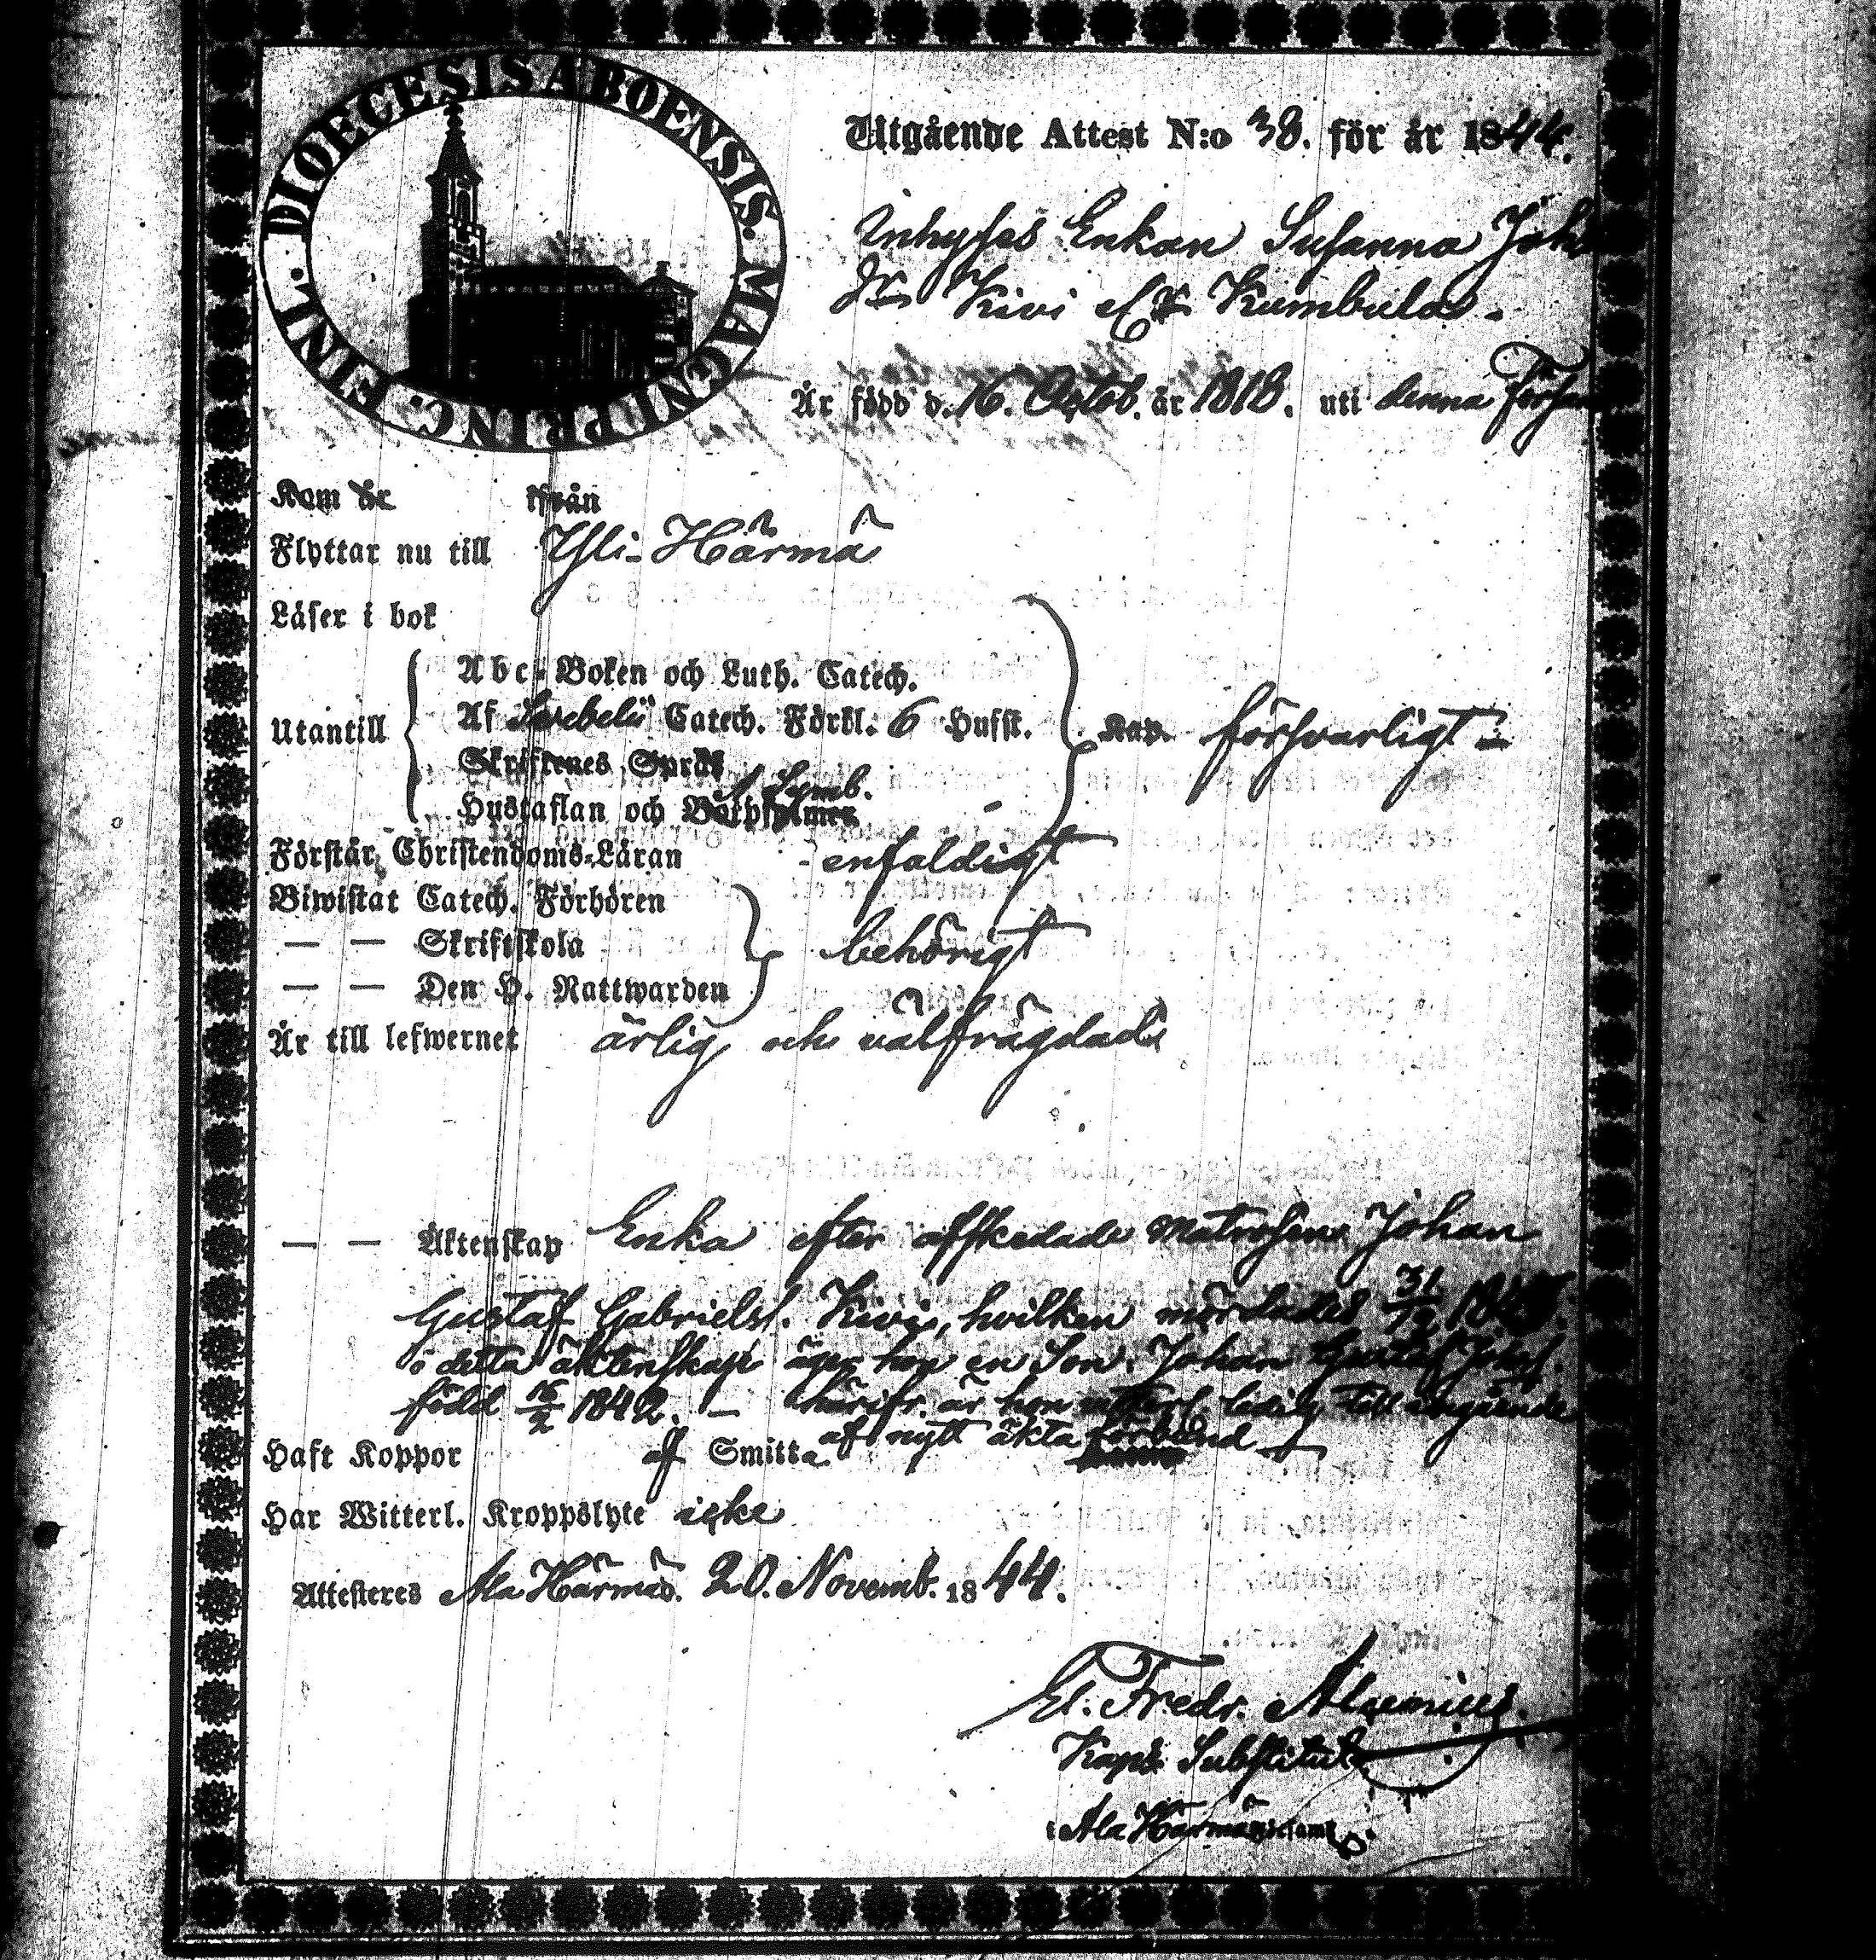 DIOECESIS ABOENSIS. MAGNI PRINC. FINL.
Utgående Attest N:o 38. för år 1844.
Inhyses Enkan Susanna Joh
Kivi Kumbula.
Är född d. 16. Octob. år 1818. uti denna Förs
Kom år ifrån
Flyttar nu till Yli-Härmä
Läser i bok
Abc-Boken och Luth. Catech.
Utantill Af Svebelii Catech. Förkl. 6 Hufst. försvarligt
Skriftenes Språk
Symb.
Hustaflan och Botpsalmer
Förstår Christendoms-Läran enfaldigt
Biwistat Catech. Förhören
— — Skriftskola behörigt
— — Den H. Nattwarden
Är till lefwernet ärlig och välfrägdad
— — Äktenskap Enka efter afskedade Matrosen Johan
Gustaf Gabrielss. Kivi, hvilken mördades 31
i detta äktenskap äger hon en Son, Johan Gustaf
född 16/2 1842. — härifr. är hon ledig till ingående
af nytt äkta förbund
Haft Koppor af Smitta
Har Witterl. Kroppslyte icke
Attesteres Ala Härmä. 20. Novemb. 1844.
Fredr. Alcenius.
Kaps Substitut
Ala Härmä